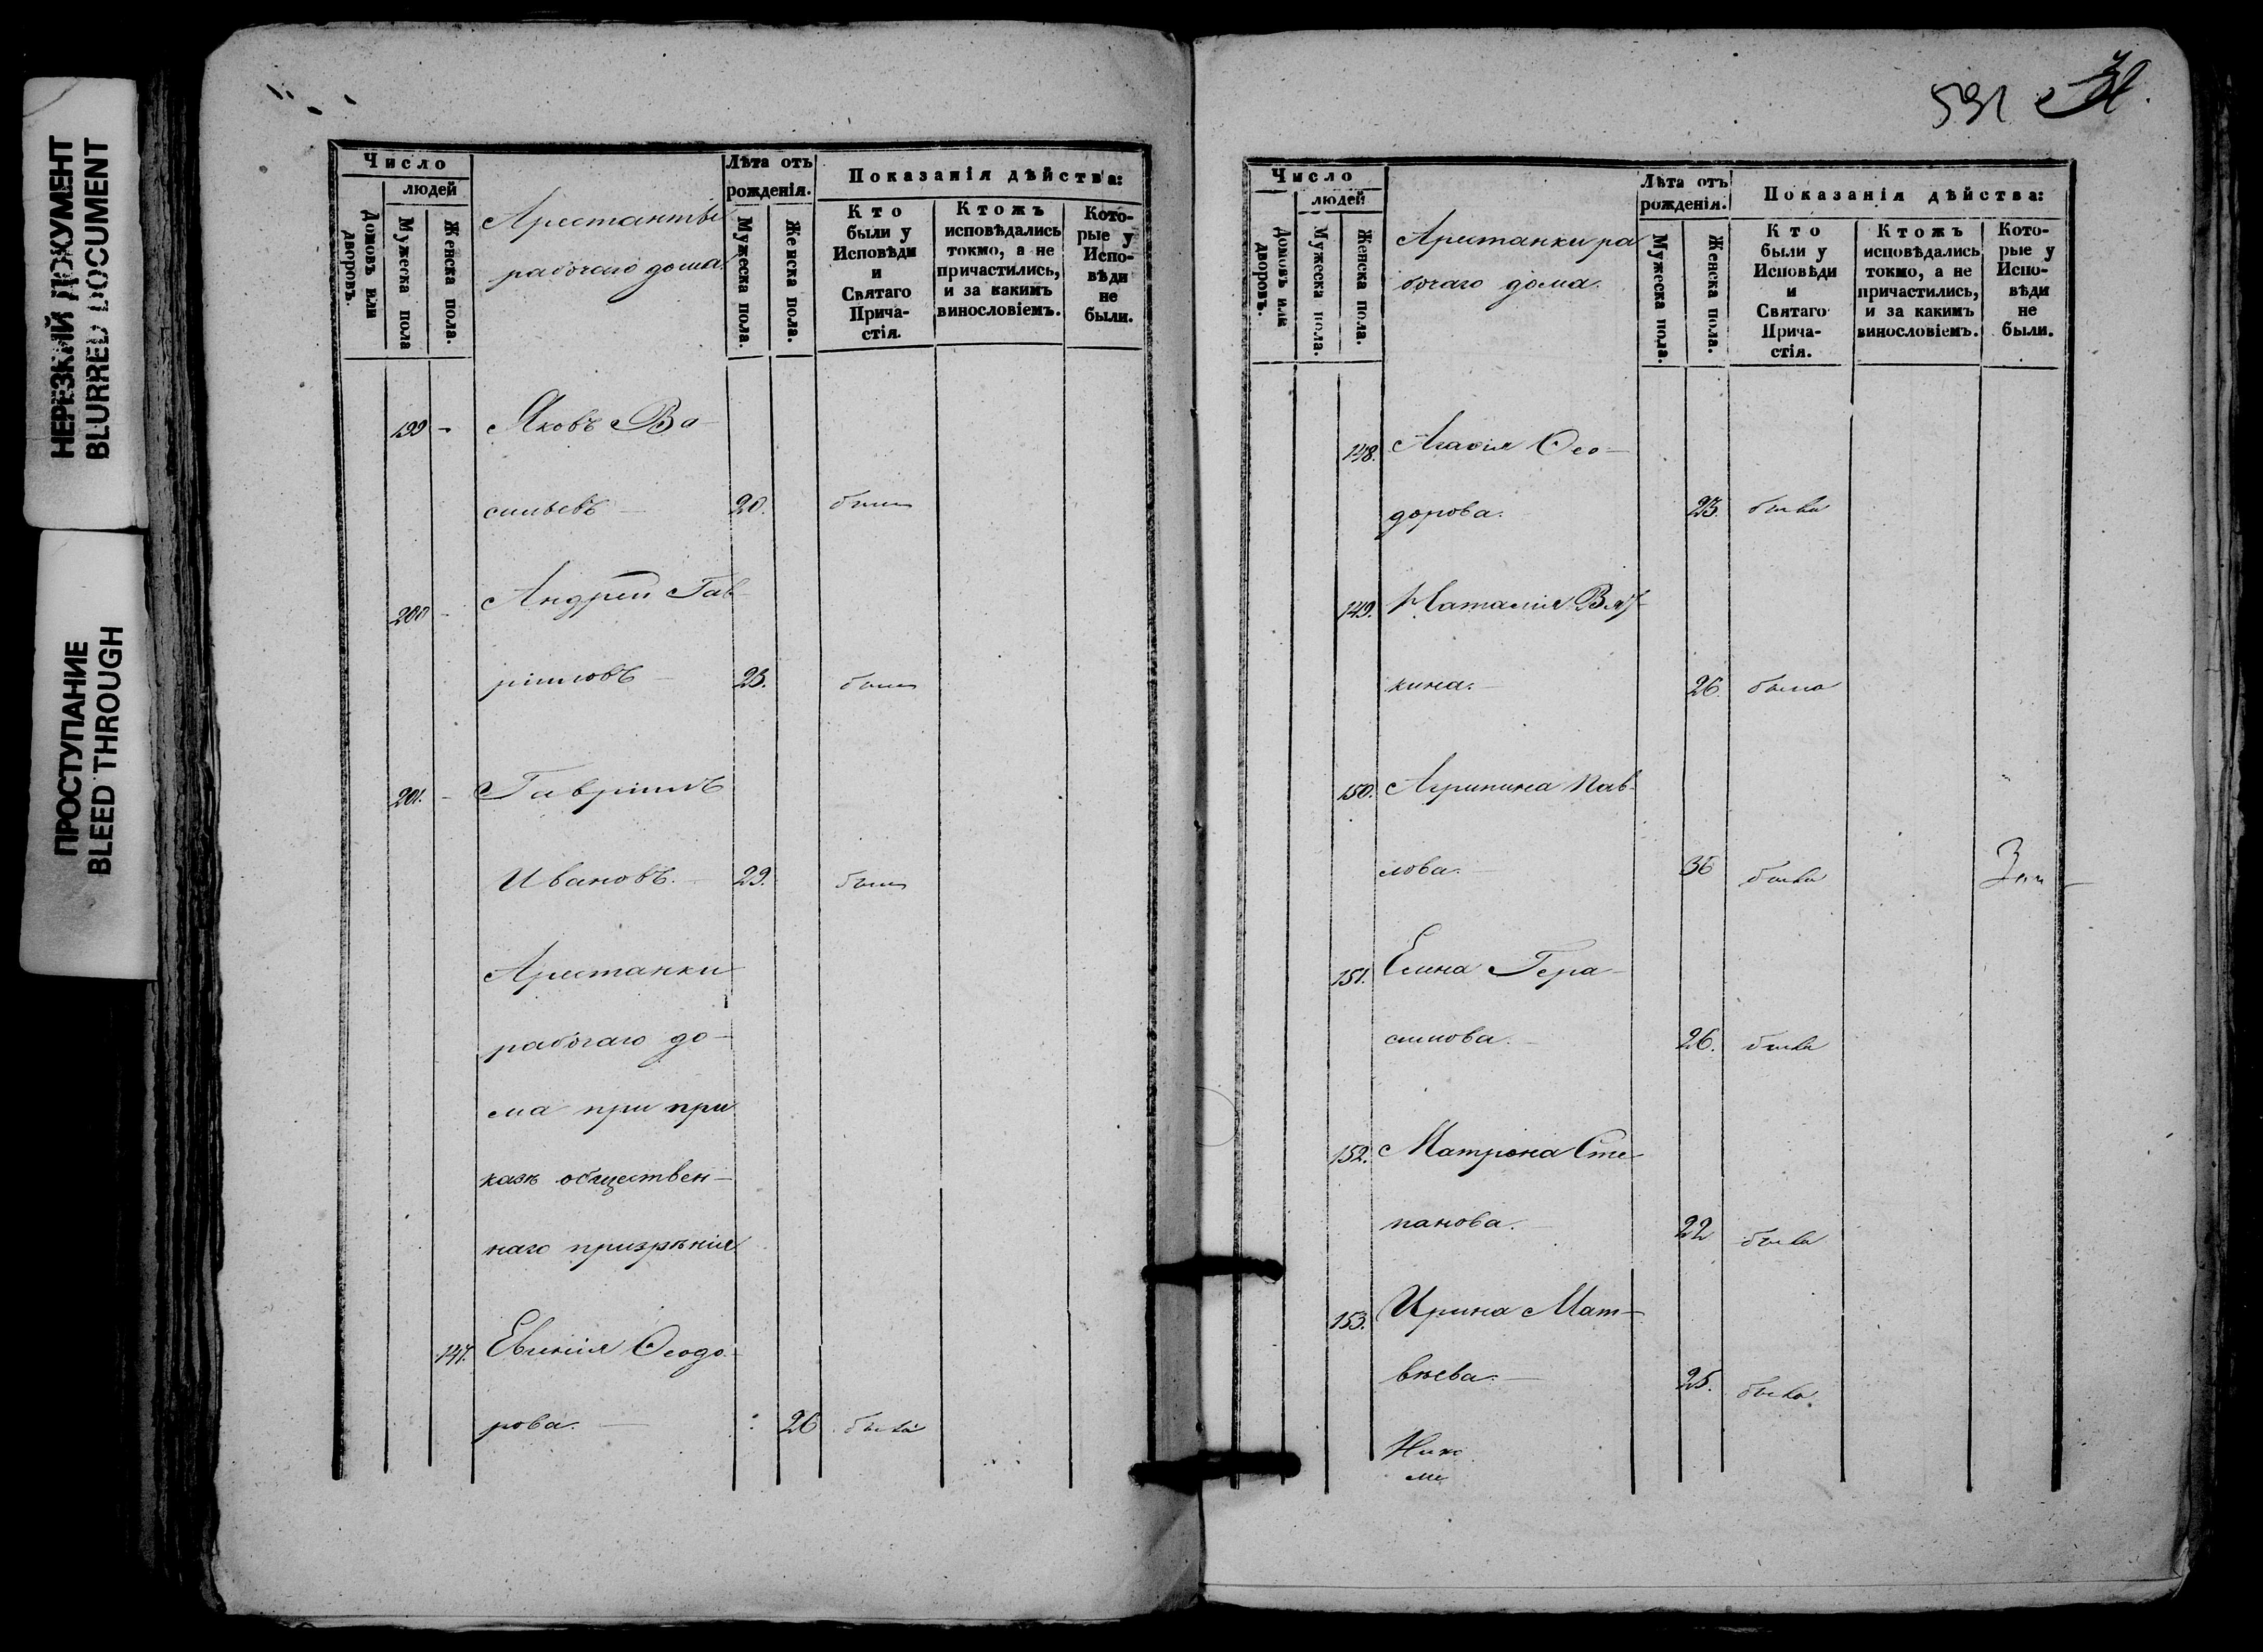 НЕРЕЗКИЙ ДОКУМЕНТ
BLURRED DOCUMENT
ПРОСТУПАНИЕ
BLEED THROUGH
Число
людей
Домовъ или дворовъ.
Мужеска пола
Женска пола.
Арестанты
рабочаго дома.
Лѣта отъ
рожденія.
Мужеска пола.
Женска пола.
Показанія дѣйства:
Кто
были у
Исповѣди
и
Святаго
Прича-
стія.
Ктожъ
исповѣдались
токмо, а не
причастились,
и за какимъ
винословіемъ.
Кото-
рые у
Испо-
вѣди
не
были.
199 - Яковъ Ва-
сильевъ — 20. былъ
200 - Андрей Гав-
ріиловъ — 23. былъ
201. - Гавріилъ
Ивановъ. — 29. былъ
Арестанки
рабочаго до-
ма при при
казѣ обществен-
наго призрѣнія
147. Евгенія Ѳеодо-
рова. — 26 была
591
Число
людей
Домовъ или дворовъ.
Мужеска пола.
Женска пола.
Арестанки ра
бочаго дома.
Лѣта отъ
рожденія.
Мужеска пола.
Женска пола.
Показанія дѣйства:
Кто
были у
Исповѣди
и
Святаго
Прича-
стія.
Ктожъ
исповѣдались
токмо, а не
причастились,
и за какимъ
винословіемъ.
Кото-
рые у
Испо-
вѣди
не
были.
148. Агафія Ѳео-
дорова. — 23. была
149. Наталія Вят-
кина. — 26. была
150. Агрипина Пав-
лова. — 36 была
151. Елена Гера-
симова. — 26. была
152. Матрона Сте
панова. — 22 была
153. Ирина Мат-
вѣева. — 25. была